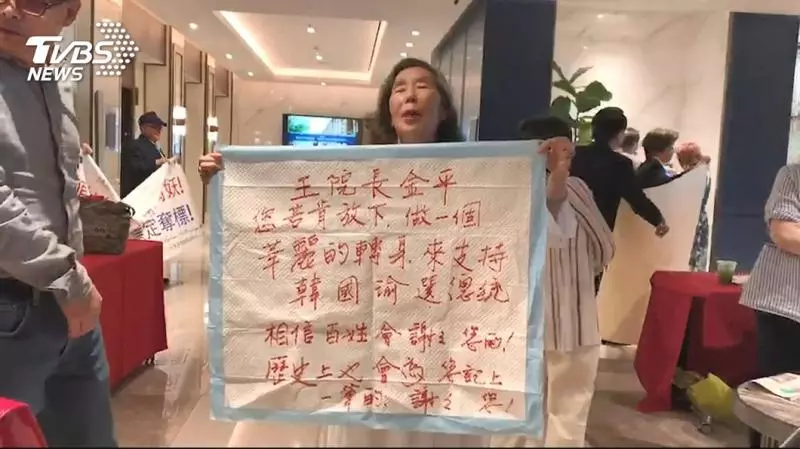 TVBS
NEWS
好!
定奪標!
王院長金平
您若肯放下,做一個
華麗的轉身,來支持
韓國諭選總統
相信百姓會謝々您的!
歷史上也會為您記上
一筆的,謝々您!